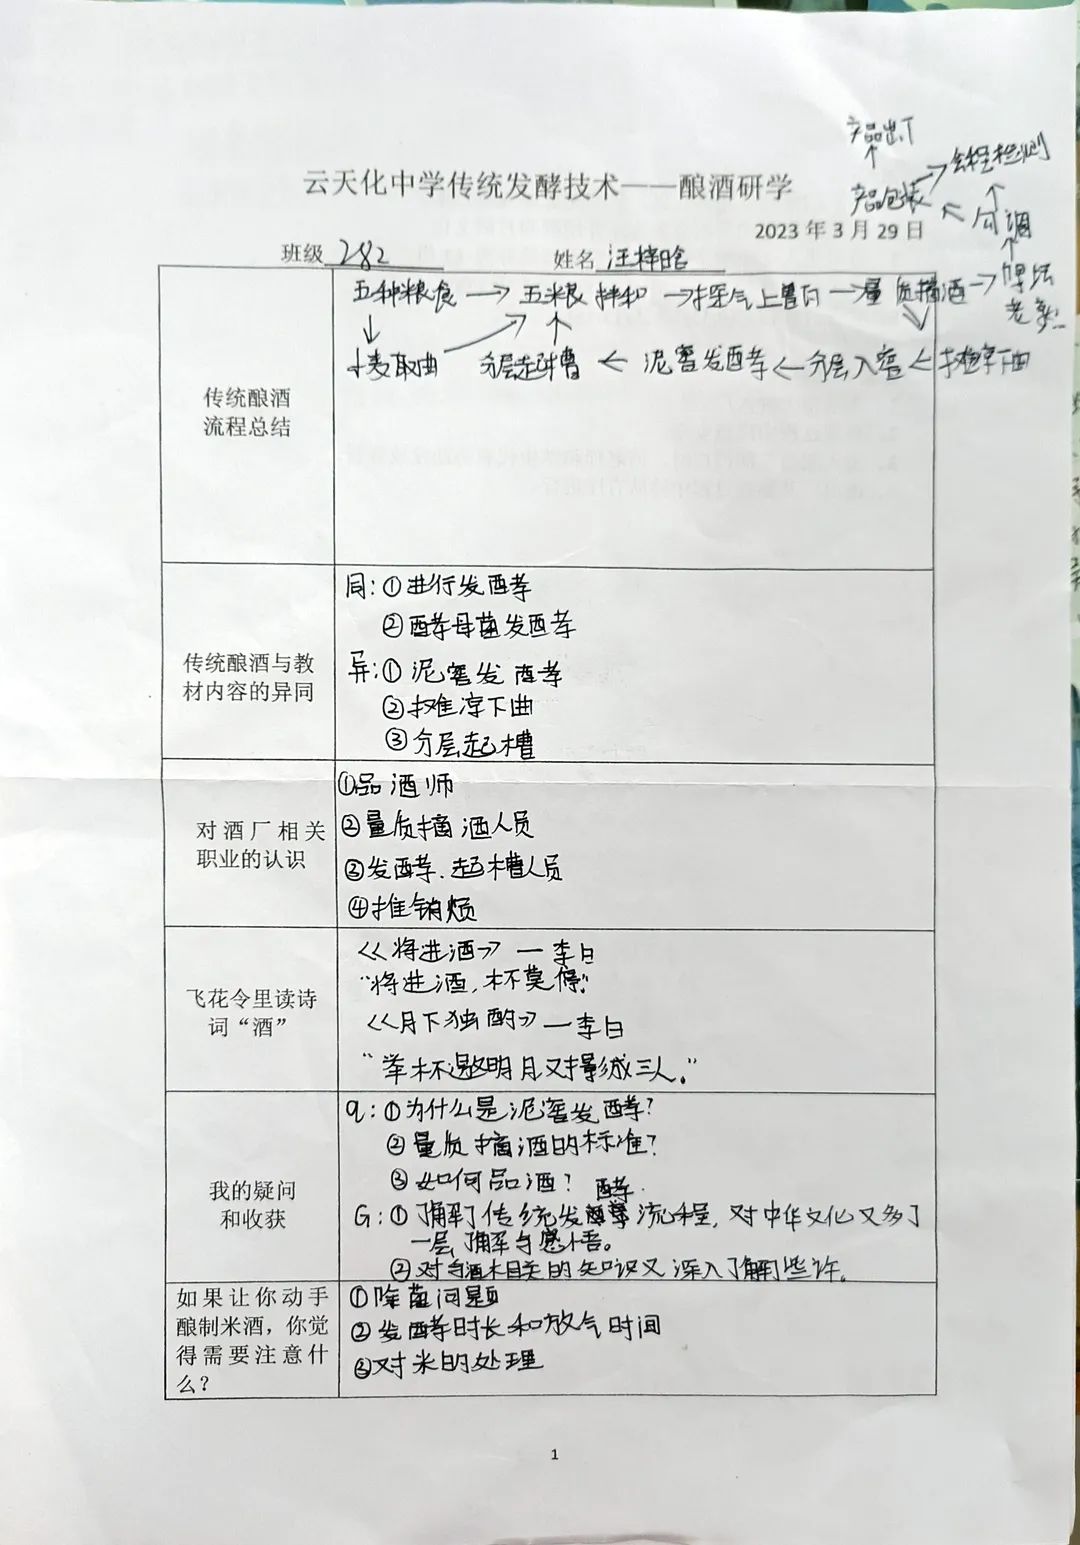 产品出厂
全程检测
云天化中学传统发酵技术——酿酒研学
产品包装
勾调
2023 年 3 月 29 日
班级 282 姓名 汪梓晗
五种粮食 → 五粮拌和 → 探气上甑 → 量质摘酒 →
老熟
小麦取曲 分层起槽 ← 泥窖发酵 ← 分层入窖 ← 摊凉下曲
传统酿酒
流程总结
同:①进行发酵
②酵母菌发酵
传统酿酒与教
材内容的异同
异:①泥窖发酵
②摊凉下曲
③分层起槽
①品酒师
对酒厂相关
职业的认识
②量质摘酒人员
③发酵、起槽人员
④推销烦
飞花令里读诗
词“酒”
《将进酒》—李白
“将进酒,杯莫停”
《月下独酌》—李白
“举杯邀明月又对影成三人。”
我的疑问
和收获
q:①为什么是泥窖发酵?
②量质摘酒的标准?
③如何品酒?
酵
G:①了解了传统发酵流程,对中华文化又多了
一层了解与感悟。
②对与酒相关的知识又深入了解些许。
如果让你动手
酿制米酒,你觉
得需要注意什
么?
①除菌问题
②发酵时长和放气时间
③对米的处理
1